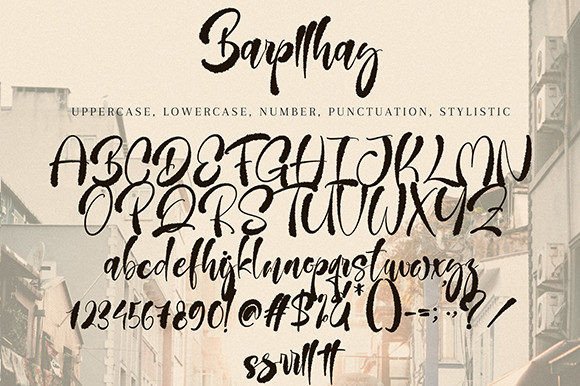 Barpllhag
UPPERCASE, LOWERCASE, NUMBER, PUNCTUATION, STYLISTIC
ABCDEFGHIJKLMN
OPQRSTUVWXYZ
abcdefghijklmnopqrstuvwxyz
1234567890!@#$%&*()-=;.,?/
ss rr ll tt